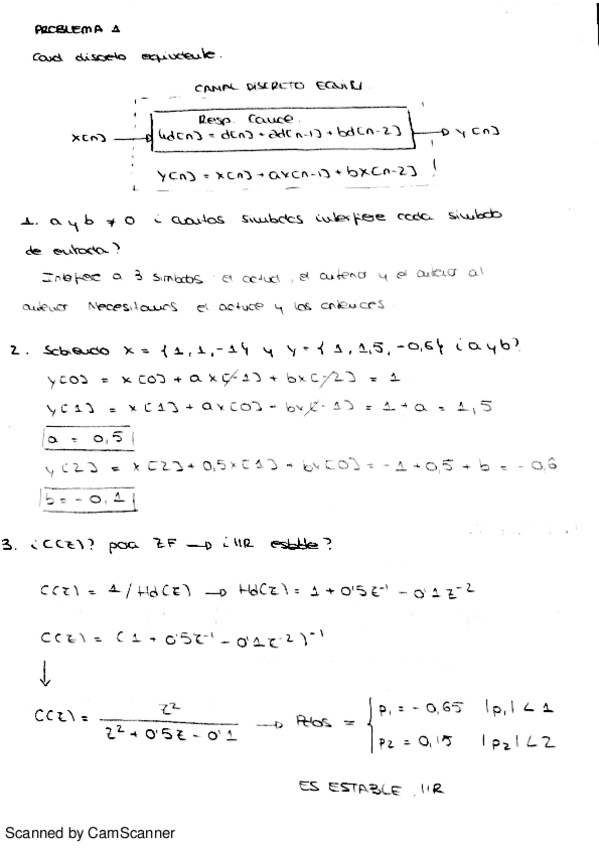 PROBLEMA 1
Canal discreto equivalente.
CANAL DISCRETO EQUIV.
Resp. Cauce.
x[n] → hd[n] = d[n] + ad[n-1] + bd[n-2] → y[n]
y[n] = x[n] + ax[n-1] + bx[n-2]
1. a y b ≠ 0 ¿ cuantos simbolos interfiere cada simbolo
de entrada?
a 3 simbolos el actual, el anterior y el anterior al
anterior Necesitamos el actual y los
2. Sabiendo x = {1, 1, -1} y y = {1, 1,5, -0,6} ¿ a y b?
y[0] = x[0] + ax[-1] + bx[-2] = 1
y[1] = x[1] + ax[0] + bx[-1] = 1 + a = 1,5
a = 0,5
y[2] = x[2] + 0,5x[1] + bx[0] = -1 + 0,5 + b = -0,6
b = -0,1
3. ¿C(z)? para ZF → ¿IIR estable?
C(z) = 1/Hd(z) → Hd(z) = 1 + 0'5z⁻¹ - 0'1z⁻²
C(z) = (1 + 0'5z⁻¹ - 0'1z⁻²)⁻¹
↓
C(z) = z² / (z² + 0'5z - 0'1) → Polos = { p₁ = -0,65 |p₁| < 1
p₂ = 0,15 |p₂| < 2
ES ESTABLE, IIR
Scanned by CamScanner